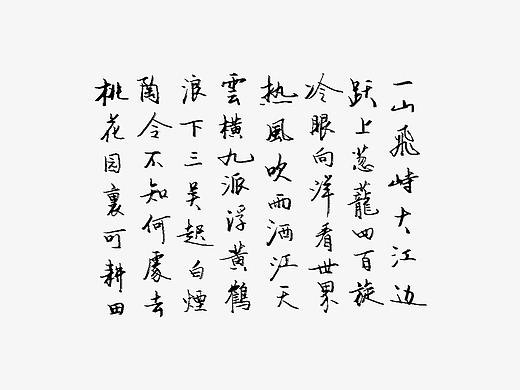 一山飛峙大江边
跃上葱蘢四百旋
冷眼向洋看世界
热風吹雨洒江天
雲横九派浮黄鶴
浪下三吴起白煙
陶令不知何處去
桃花园裏可耕田